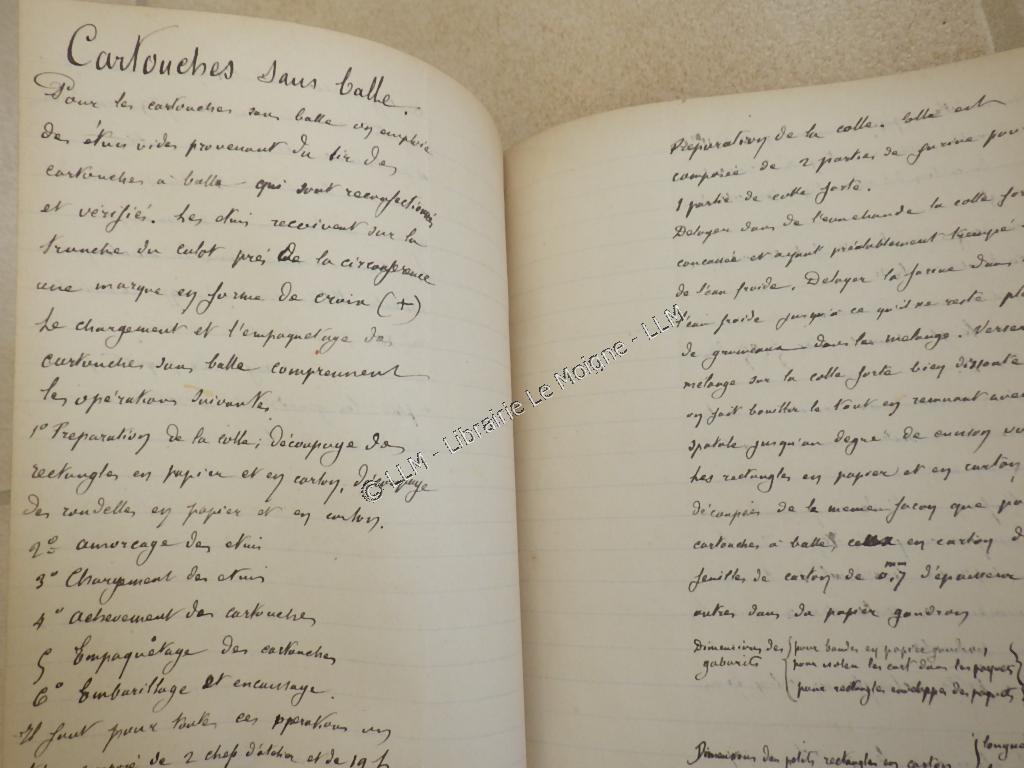 Cartouches sans balle.
Pour les cartouches sans balle on emploie
des étuis vides provenant du tir des
cartouches à balle qui sont reconfectionnés
et vérifiés. Les étuis recoivent sur la
tranche du culot près de la circonférence
une marque en forme de croix (+)
Le chargement et l'empaquetage des
cartouches sans balle comprennent
les opérations suivantes
1° Préparation de la colle; découpage des
rectangles en papier et en carton, découpage
des rondelles en papier et en carton.
2° amorcage des étuis
3° Chargement des étuis
4° achevement des cartouches
5 Empaquêtage des cartouches
6° Embarillage et encaissage.
Il faut pour toutes ces opérations un
de 2 chefs d'atelier et de 19
Préparation de la colle. Elle est
composée de 2 parties de farine pour
1 partie de colle forte.
Delayer dans de l'eau chaude la colle
concassée et ayant préalablement trempé
de l'eau froide. Delayer la farine dans
l'eau froide jusqu'à ce qu'il ne reste
de grumeaux dans les melange. Verser
mélange sur la colle forte bien dissoute
on fait bouillir le tout en remuant avec
spatule jusqu'au degré de cuisson
Les rectangles en papier et en carton
découpés de la meme façon que
cartouches à balle, en carton
feuilles de carton de 0mm,7 d'épaisseur
autres dans du papier goudron
Dimensions des gabarits { pour bandes en papier goudron
pour isoler les cart dans les paquets
pour rectangles enveloppes des paquets }
Dimensions des petits rectangles en carton {
© LLM - Librairie Le Moigne - LLM